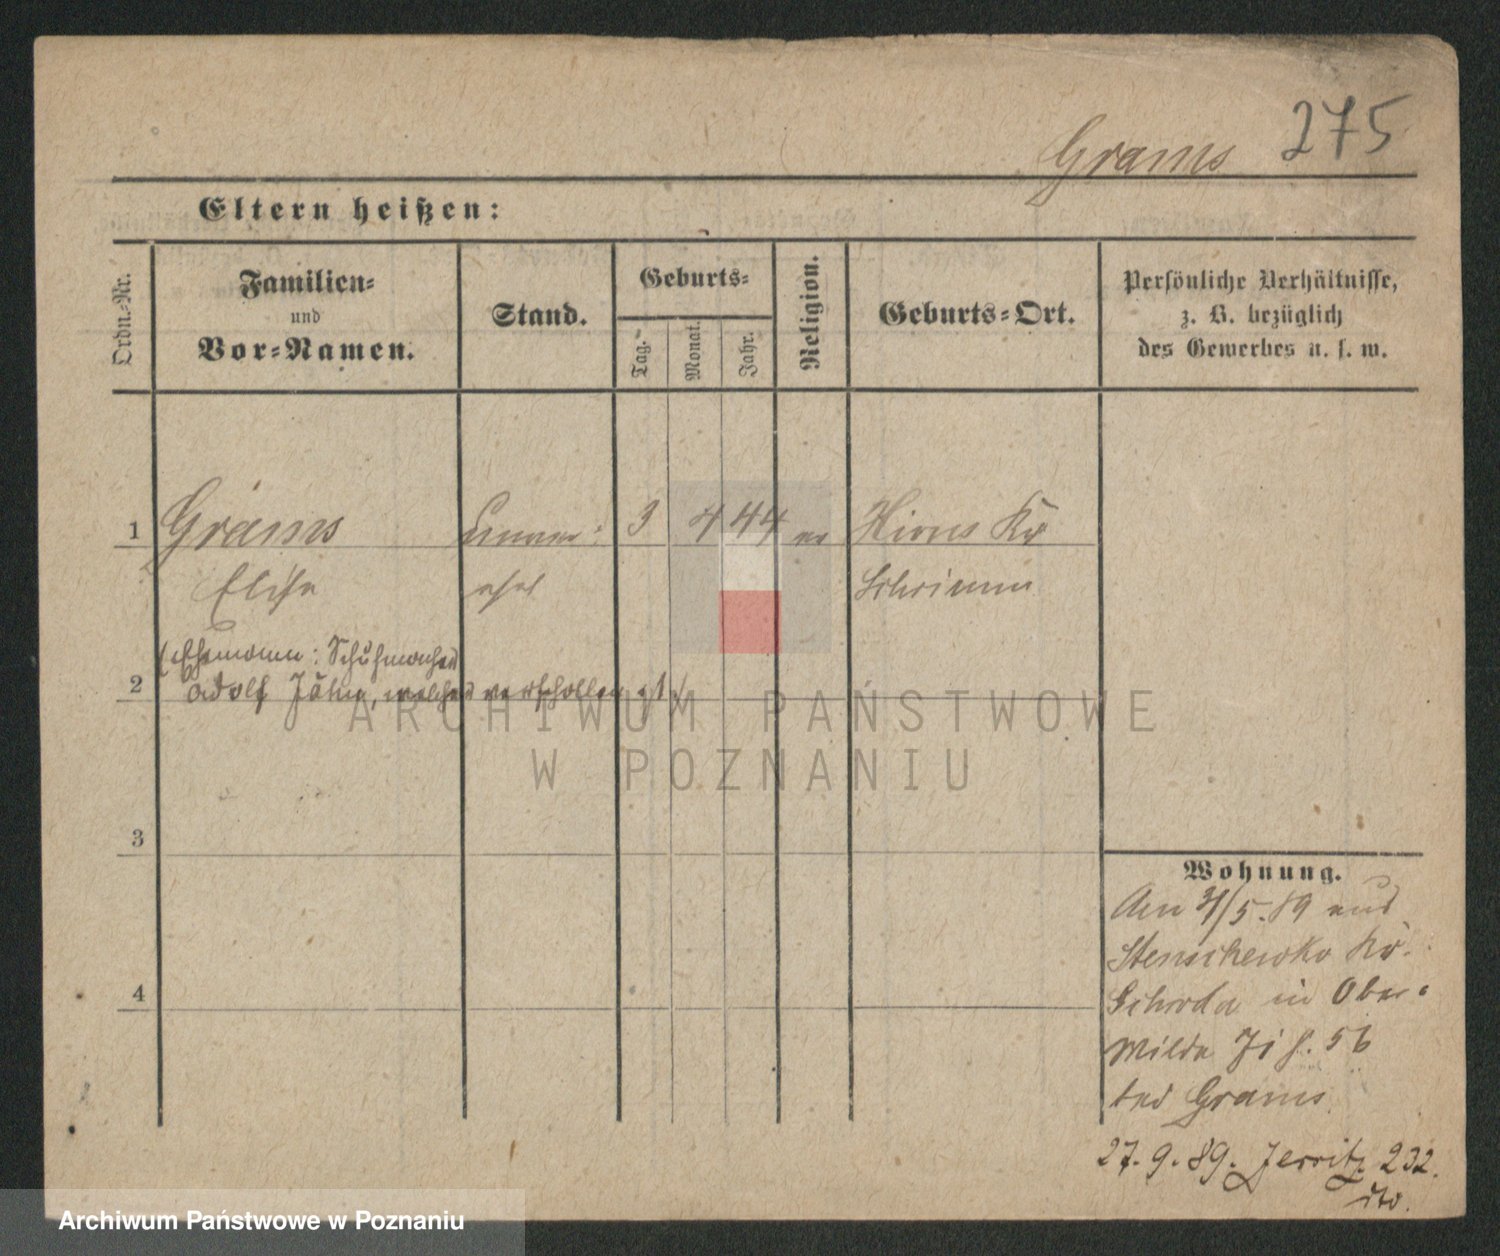 275
Grams
Eltern heißen:
Ordn.-Nr.
Familien-
und
Vor-Namen.
Stand.
Geburts-
Tag.
Monat.
Jahr.
Religion.
Geburts-Ort.
Persönliche Verhältnisse,
z. B. bezüglich
des Gewerbes u. s. w.
1 Grams 3 4 44 Kr
Elise ehel Schrimm
(Ehemann: Schuhmacher
2 Adolf Jähn, welcher verschollen ist)
3
Wohnung.
Am 31/5. 89 aus
Stenschewko Kr.
4
Schroda in Ober-
Wilda 56
bei Grams
27. 9. 89. Jerzitz 232.
ARCHIWUM PAŃSTWOWE
W POZNANIU
Archiwum Państwowe w Poznaniu